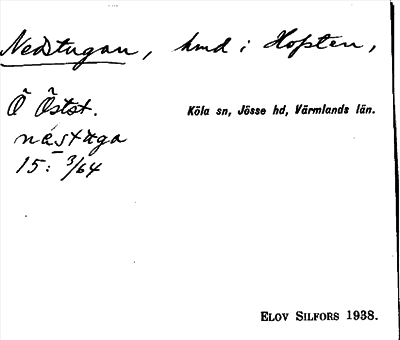 Nedstugan, hmd i Hopten,
Ö Östst.
Köla sn, Jösse hd, Värmlands län.
nástuga
15: 3/64
ELOV SILFORS 1938.